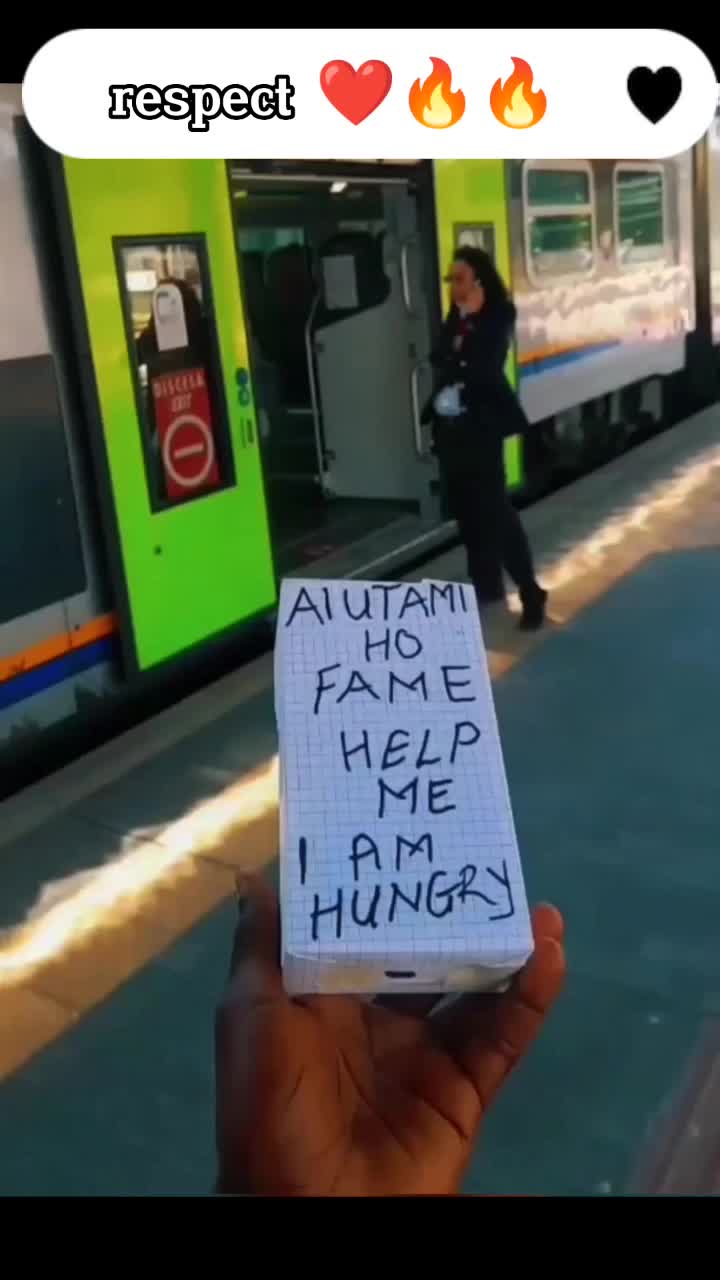 respect ❤️🔥🔥 🖤
DISCESA
EXIT
AIUTAMI
HO
FAME
HELP
ME
I AM
HUNGRY